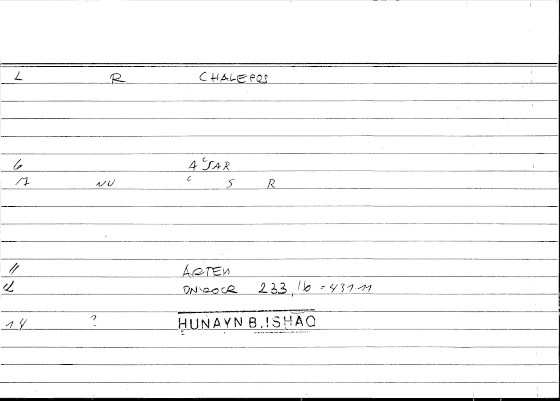 L R CHALEPOS
6 AʿSAR
17 NU ʿ S R
11 ARTEM
12 233,16 = 431.11
14 ? HUNAYN B. ISHAQ